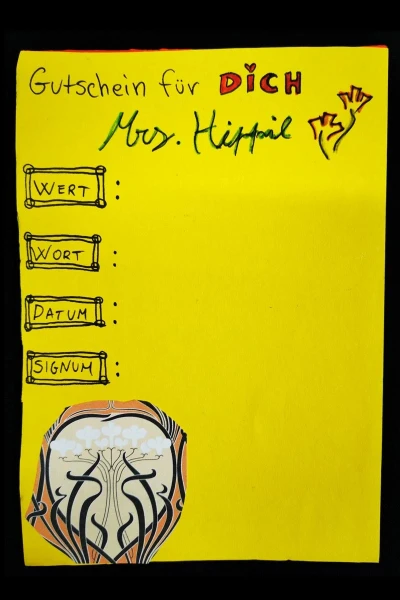 Gutschein für DiCH
Mrs. Hippie
WERT :
WORT :
DATUM :
SIGNUM :